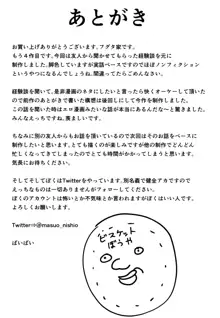 あとがき
お買い上げありがとうございます。フグタ家です。
もう4作目です。今回は友人から聞かせてもらった経験談を元に
制作しました。脚色していますが実話ベースですのでほぼノンフィクション
というやつになるんでしょうね。間違ってたらごめんなさい。
経験談を聞いて、是非漫画のネタにしたいと思ったら快くオーケーして頂いた
ので前作のあとがきで書いた構想は後回しにして今作を制作しました。
この話を聞いた時はエロ漫画みたいな話が本当にあるんだな〜と驚きました。
みんなえっちですね。羨ましい。
ちなみに別の友人からもお話を頂いているので次回はそのお話をベースに
制作したいと思います。とても描くのが楽しみですが他の制作でどんどん
忙しくなってきてしまったのでとても時間がかかってしまうと思います。
気長にお待ちください。
そしてそしてぼくはTwitterをやっています。別名義で健全アカですので
えっちなものは一切ありませんがフォローしてください。
ぼくのアカウントは怖いとか不気味とか言われますがぼくはいい人です。
よろしくお願いします。
Twitter⇒@masuo_nishio
ばいばい
ビスケット
ぼうや